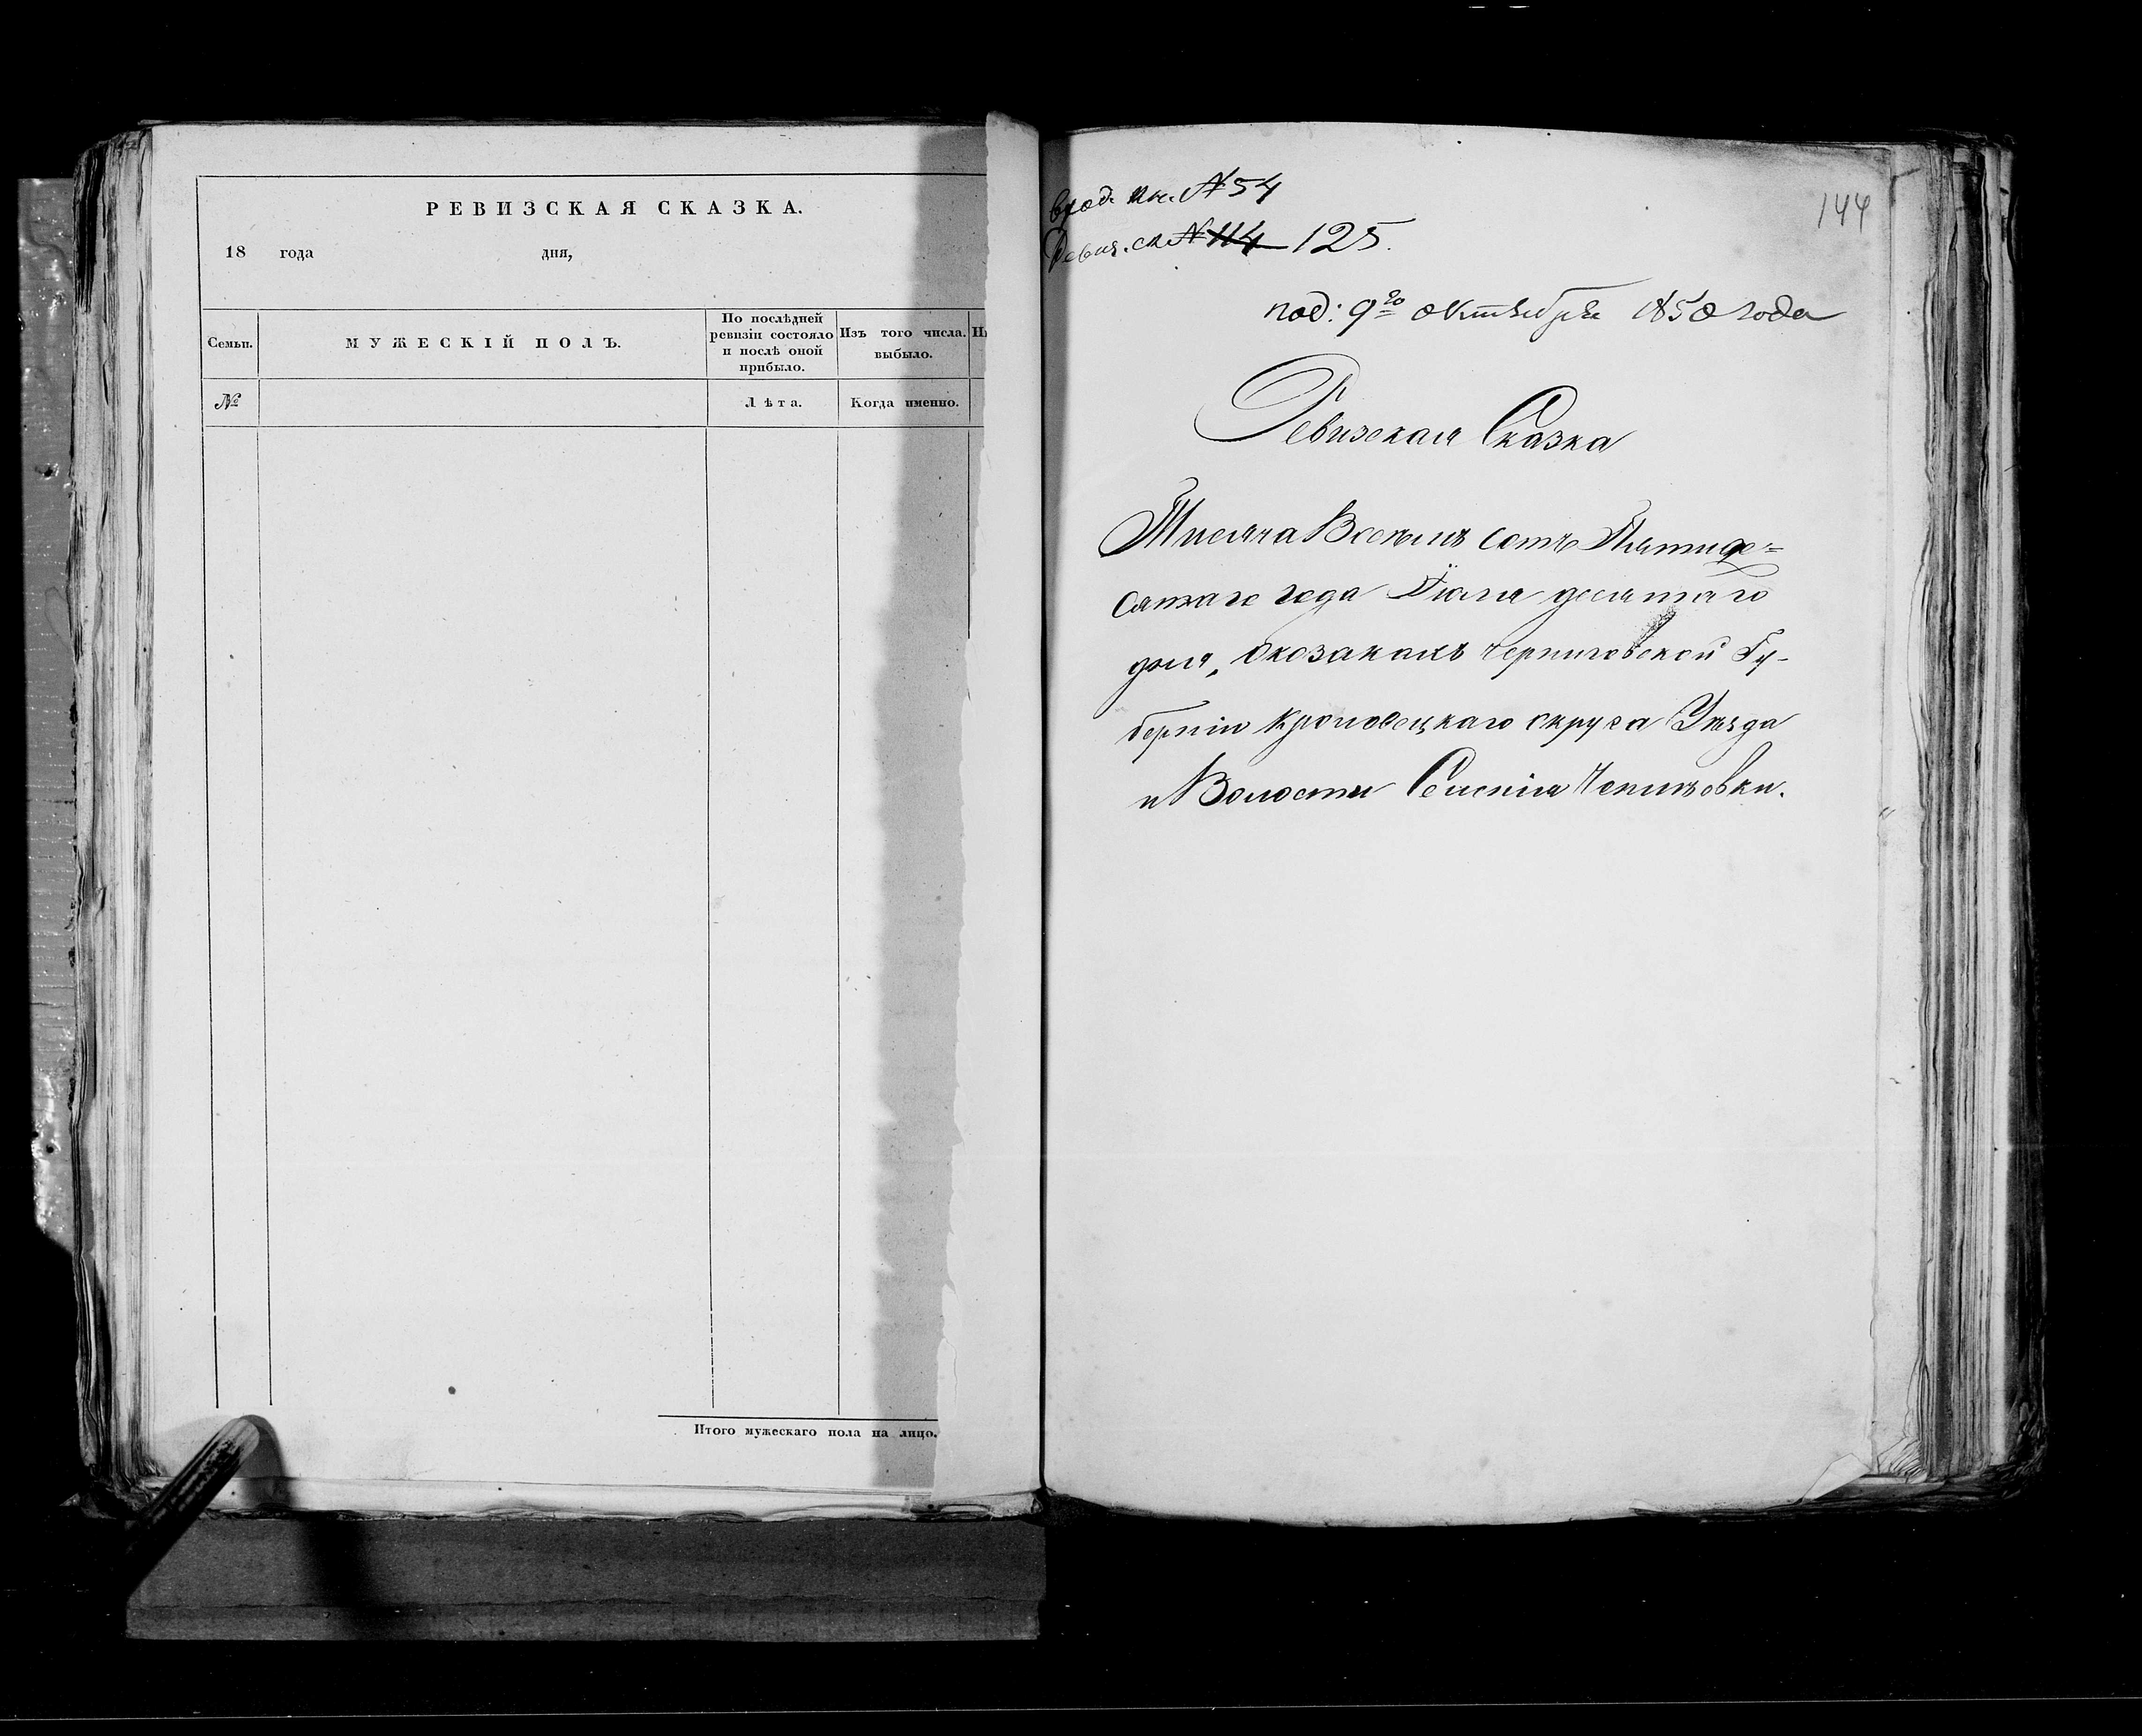 РЕВИЗСКАЯ СКАЗКА.
18 года дня,
Семьи.
МУЖЕСКІЙ ПОЛЪ.
По послѣдней
ревизіи состояло
и послѣ оной
прибыло.
Изъ того числа
выбыло.
№
Лѣта.
Когда именно.
Итого мужескаго пола на лицо.
вход. кн. № 54
Ревиз. ск № 114 125.
144
под: 9го октября 1850 года
Ревизская Сказка
Тысяча Восемь сотъ Пятиде=
сятаго года Іюля десятаго
дня, о козакахъ Черниговской Гу-
берніи Кролевецкаго округа Уѣзда
и Волости Селенія